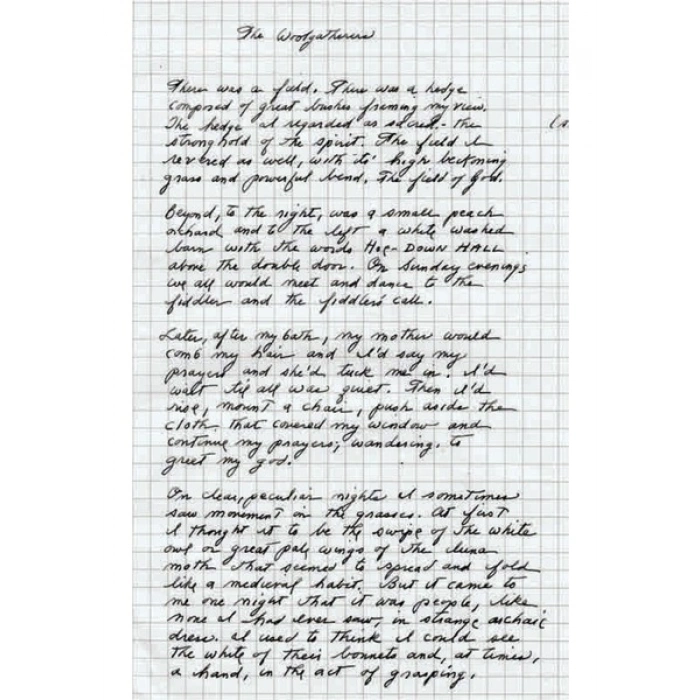 The Woolgatherers
There was a field. There was a hedge
composed of great bushes framing my view.
The hedge I regarded as sacred - the
stronghold of the spirit. The field I
revered as well, with its' high beckoning
grass and powerful bend. The field of God.
Beyond, to the right, was a small peach
orchard and to the left a white washed
barn with the words HOE-DOWN HALL
above the double door. On Sunday evenings
we all would meet and dance to the
fiddler and the fiddlers' call.
Later, after my bath, my mother would
comb my hair and I'd say my
prayers and she'd tuck me in. I'd
wait 'til all was quiet. Then I'd
rise, mount a chair, push aside the
cloth that covered my window and
continue my prayers; wandering, to
greet my god.
On clear, peculiar nights I sometimes
saw movement in the grasses. At first
I thought it to be the swipe of the white
owl or great pale wings of the luna
moth that seemed to spread and fold
like a medieval habit. But it came to
me one night that it was people, like
none I had ever saw, in strange archaic
dress. I used to think I could see
the white of their bonnets and, at times,
a hand, in the act of grasping.